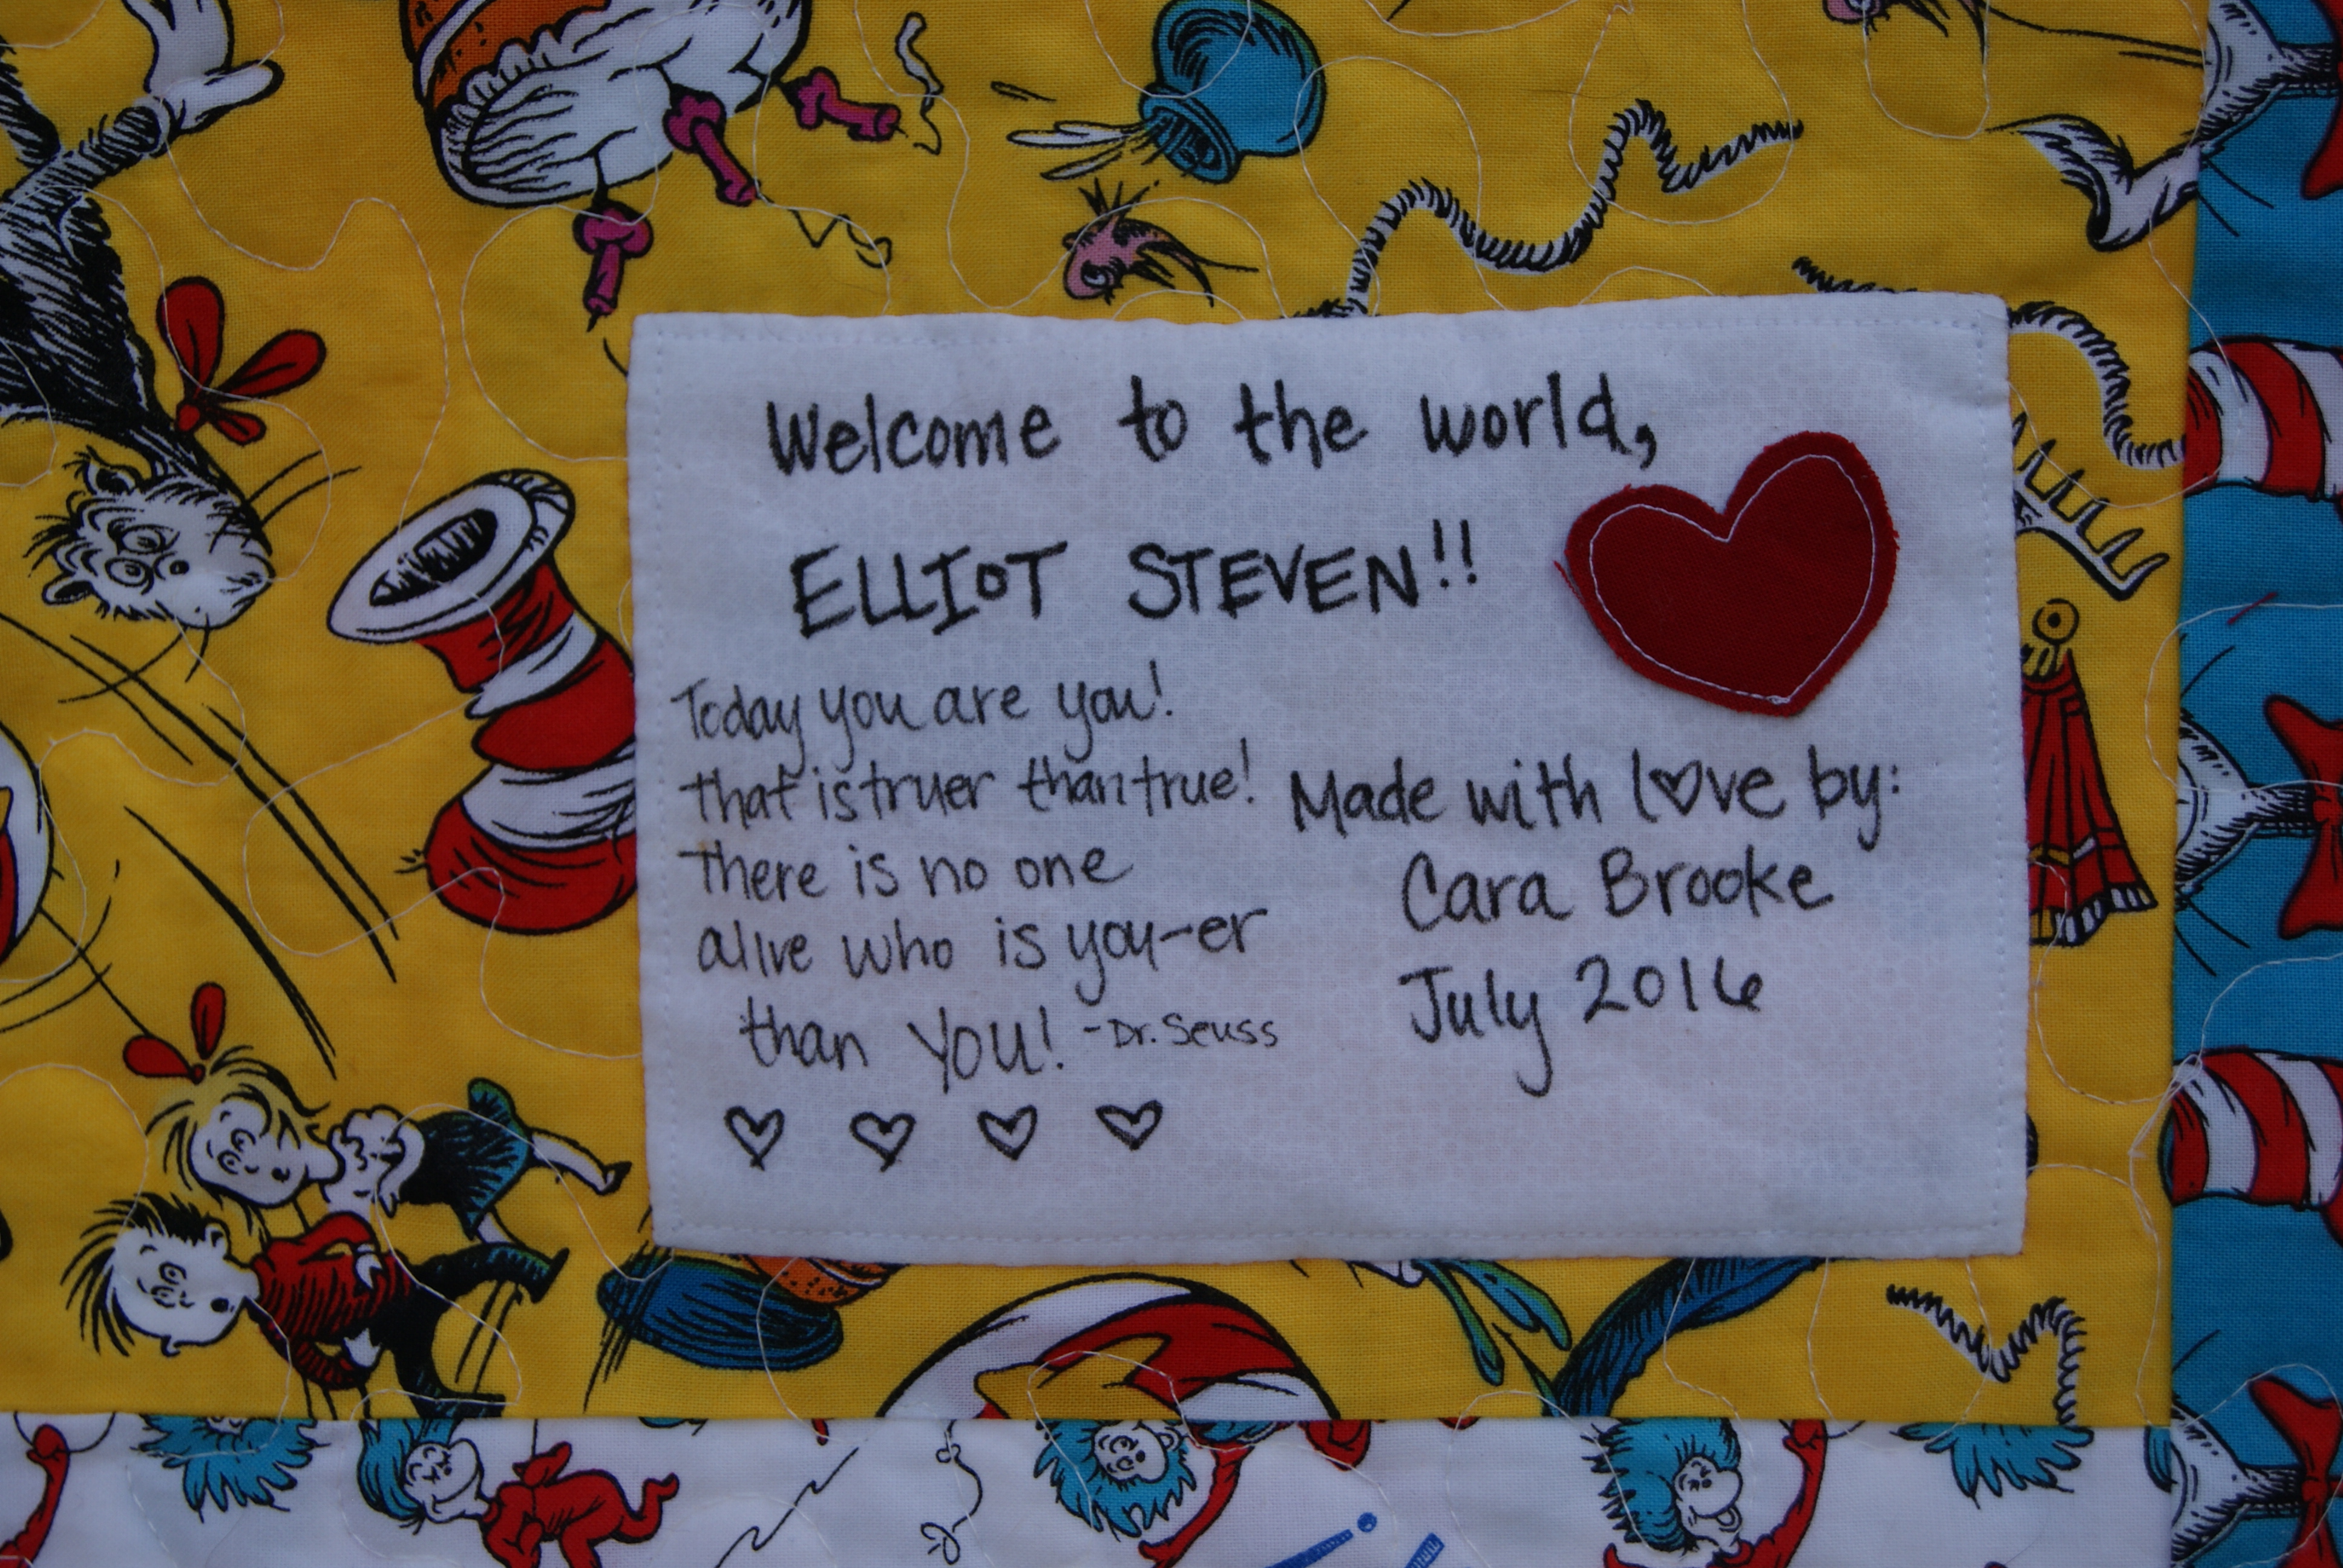 Welcome to the world,
ELLIOT STEVEN!!
Today you are you!
that is truer than true!
There is no one
alive who is you-er
than YOU! -Dr. Seuss
Made with l♡ve by:
Cara Brooke
July 2016